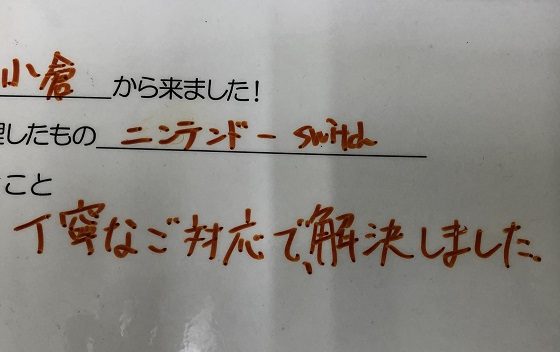 小倉から来ました！
理したもの ニンテンドー switch
こと
丁寧なご対応で、解決しました。